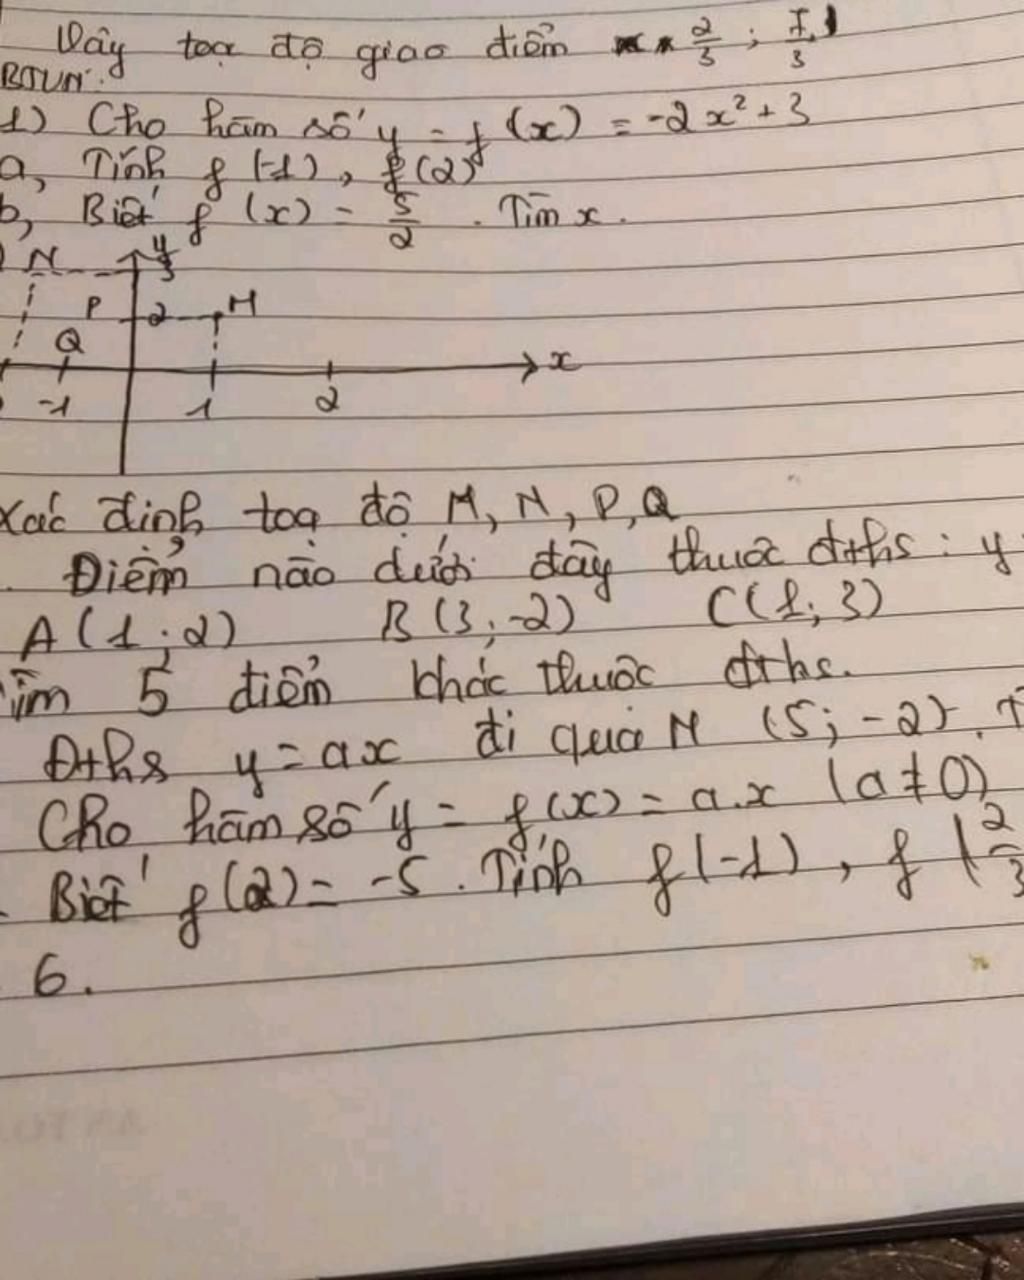 Vậy toạ độ giao điểm 2/3 ; 7/3
BTVN:
1) Cho hàm số y = f(x) = -2x² + 3
a, Tính f(-1), f(2)
b, Biết f(x) = 5/2 . Tìm x.
N y 3
P 2 M
Q x
-1 1 2
Xác định toạ độ M, N, P, Q
Điểm nào dưới đây thuộc đths: y
A(1; 2) B(3; -2) C(1; 3)
Tìm 5 điểm khác thuộc đths.
Đths y = ax đi qua M (5; -2).
Cho hàm số y = f(x) = a.x (a ≠ 0)
Biết f(2) = -5. Tính f(-1), f(2/3
6.